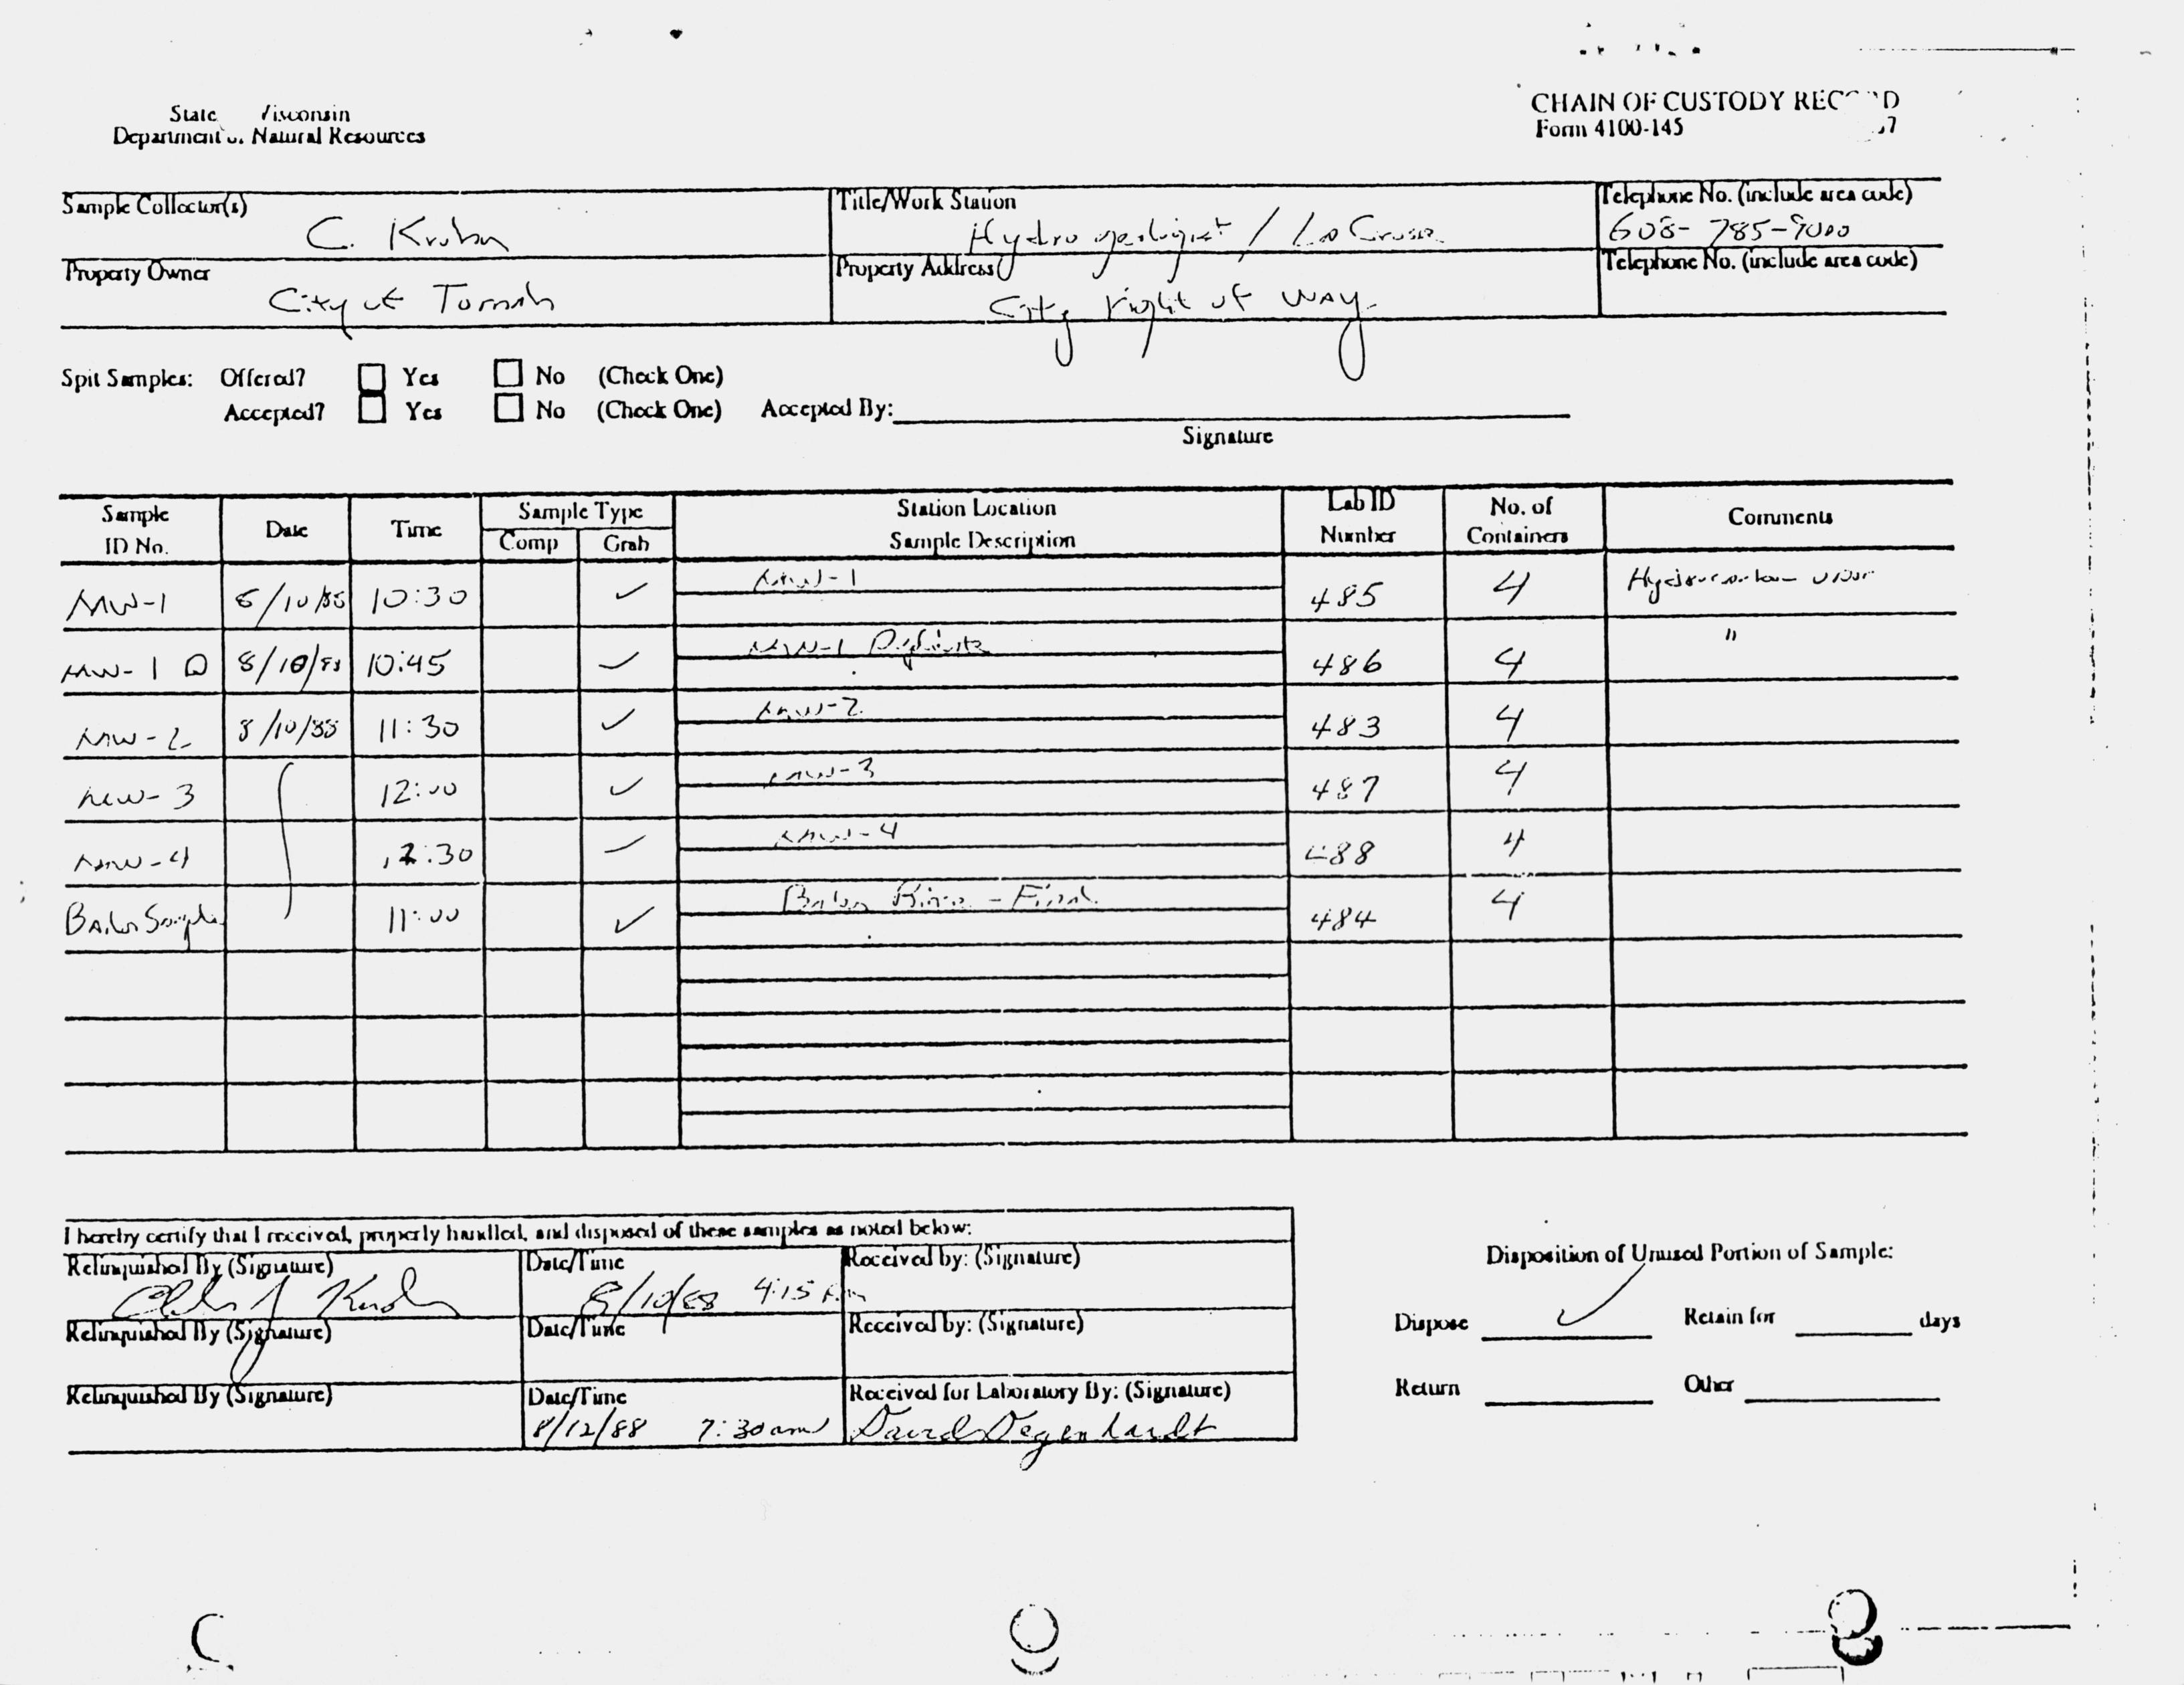 State Visconsin
Department of Natural Resources
CHAIN OF CUSTODY REC D
Form 4100-145 37
Sample Collector(s)
C. Kruhn
Title/Work Station
Hydrogeologist / LaCrosse
Telephone No. (include area code)
608-785-9000
Property Owner
City of Tomah
Property Address
City right of way
Telephone No. (include area code)
Spit Samples: Offered? Yes No (Check One)
Accepted? Yes No (Check One) Accepted By:
Signature
Sample ID No. Date Time Sample Type Comp Grab Station Location Sample Description Lab ID Number No. of Containers Comments
MW-1 8/10/88 10:30 ✓ MW-1 485 4 Hydrocarbon odor
MW-1 D 8/10/88 10:45 ✓ MW-1 Duplicate 486 4 "
MW-2 8/10/88 11:30 ✓ MW-2 483 4
MW-3 12:00 ✓ MW-3 487 4
MW-4 12:30 ✓ MW-4 488 4
Bailer Sample 11:00 ✓ Bailer Rinse - Final 484 4
I hereby certify that I received, properly handled, and disposed of these samples as noted below:
Relinquished By (Signature) Date/Time Received by: (Signature)
8/10/88 4:15 pm
Relinquished By (Signature) Date/Time Received by: (Signature)
Relinquished By (Signature) Date/Time Received for Laboratory By: (Signature)
8/12/88 7:30 am David Degenhardt
Disposition of Unused Portion of Sample:
Dispose ✓ Retain for days
Return Other